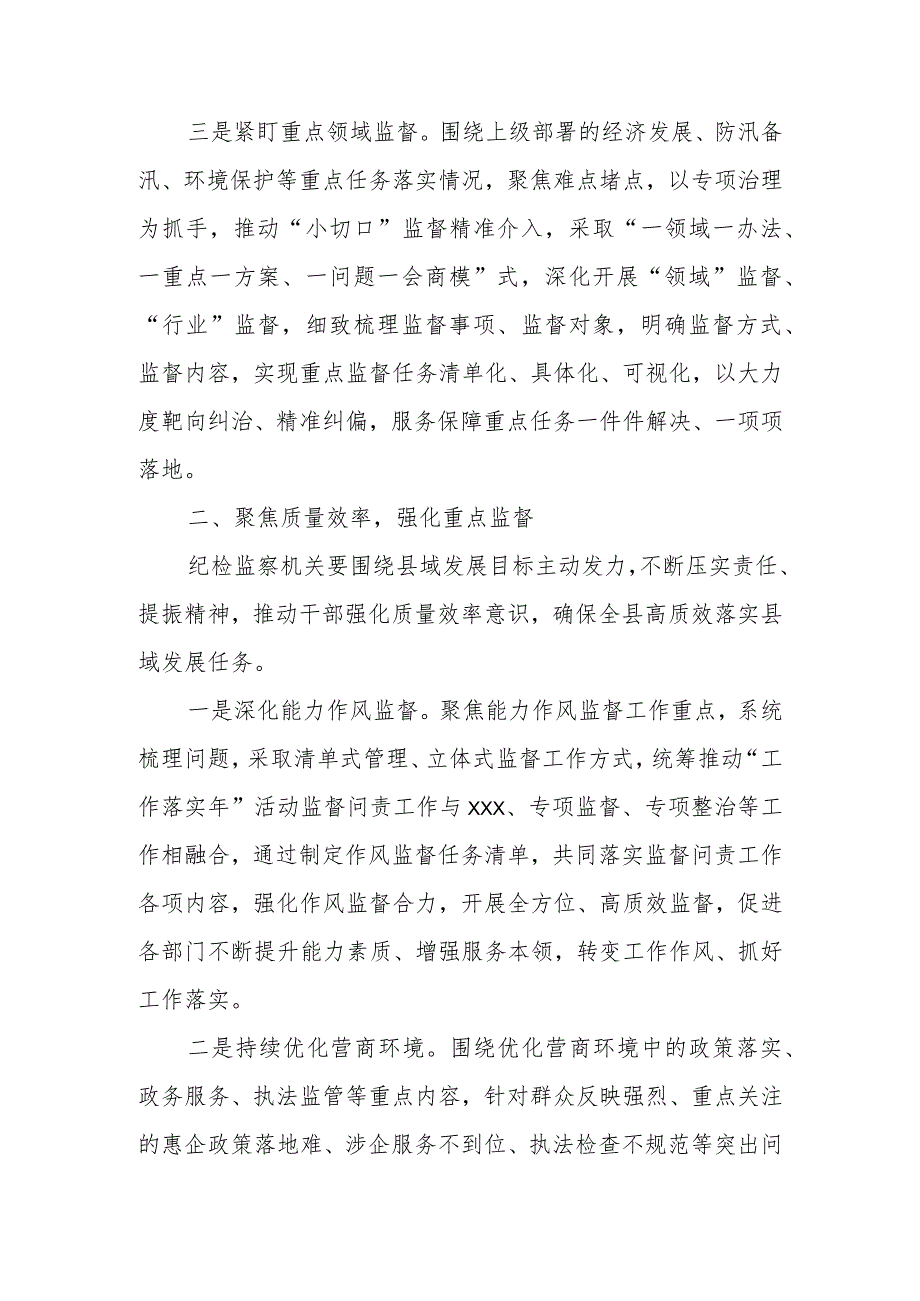 三是紧盯重点领域监督。围绕上级部署的经济发展、防汛备
汛、环境保护等重点任务落实情况，聚焦难点堵点，以专项治理
为抓手，推动“小切口”监督精准介入，采取“一领域一办法、
一重点一方案、一问题一会商模”式，深化开展“领域”监督、
“行业”监督，细致梳理监督事项、监督对象，明确监督方式、
监督内容，实现重点监督任务清单化、具体化、可视化，以大力
度靶向纠治、精准纠偏，服务保障重点任务一件件解决、一项项
落地。
二、聚焦质量效率，强化重点监督
纪检监察机关要围绕县域发展目标主动发力，不断压实责任、
提振精神，推动干部强化质量效率意识，确保全县高质效落实县
域发展任务。
一是深化能力作风监督。聚焦能力作风监督工作重点，系统
梳理问题，采取清单式管理、立体式监督工作方式，统筹推动“工
作落实年”活动监督问责工作与 xxx、专项监督、专项整治等工
作相融合，通过制定作风监督任务清单，共同落实监督问责工作
各项内容，强化作风监督合力，开展全方位、高质效监督，促进
各部门不断提升能力素质、增强服务本领，转变工作作风、抓好
工作落实。
二是持续优化营商环境。围绕优化营商环境中的政策落实、
政务服务、执法监管等重点内容，针对群众反映强烈、重点关注
的惠企政策落地难、涉企服务不到位、执法检查不规范等突出问